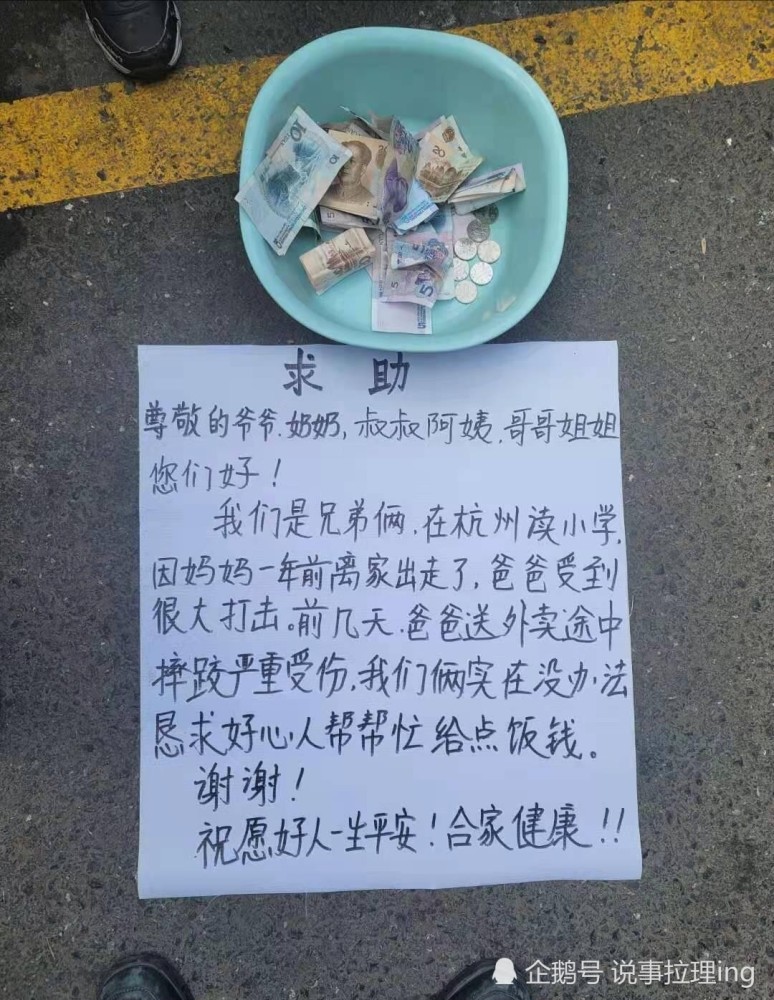 求助
尊敬的爷爷、奶奶,叔叔阿姨、哥哥姐姐
您们好!
我们是兄弟俩,在杭州读小学,
因妈妈一年前离家出走了,爸爸受到
很大打击。前几天,爸爸送外卖途中
摔跤严重受伤,我们俩实在没办法
恳求好心人帮帮忙给点饭钱。
谢谢!
祝愿好人一生平安!合家健康!!
企鹅号 说事拉理ing